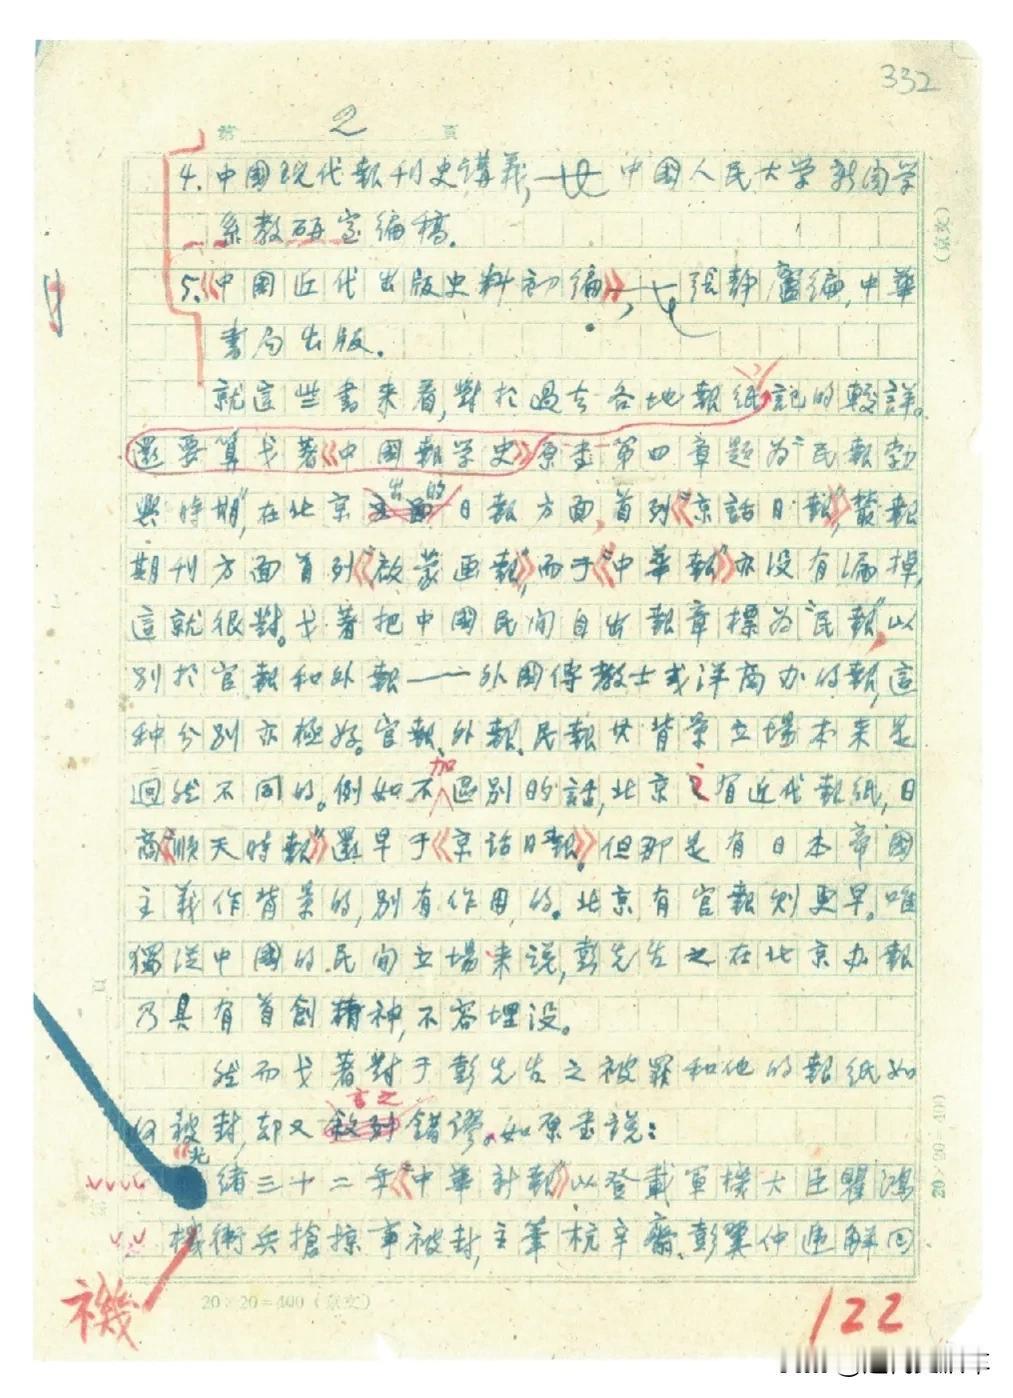 332
第 2 頁
4. 中國现代報刊史講義，— 中國人民大学新闻学
系教研室编稿.
5.《中國近代出版史料初编》，— 張静廬编,中華
書局出版.
就這些書来看,對於過去各地報紙記的較詳。
還要算戈著《中國報学史》原書第四章題为“民報勃
興時期”,在北京出的日報方面,首列《京話日報》,叢報
期刊方面首列《啟蒙画報》,而于《中華報》亦没有漏掉,
這就很對。戈著把中國民间自出報章標为“民報”,以
别於官報和外報——外國傳教士或洋商办的報,這
种分别亦極好。官報、外報、民報其背景立場本来是
迥然不同的。例如不加區别的話,北京之有近代報紙,日
商《順天時報》還早于《京話日報》。但那是有日本帝國
主義作背景的,别有作用的。北京有官報则更早。唯
獨從中國的民间立場来说,彭先生之在北京办報
乃具有首創精神,不容埋没。
然而戈著對于彭先生之被罪和他的報紙如
何被封,却又言之錯謬。如原書說:
光緒三十二年《中華新報》以登載軍機大臣瞿鴻
機衛兵搶掠事被封,主筆杭辛齋、彭翼仲遞解回
禨
20×20=400(京文)
122
(京文)
20×20=400